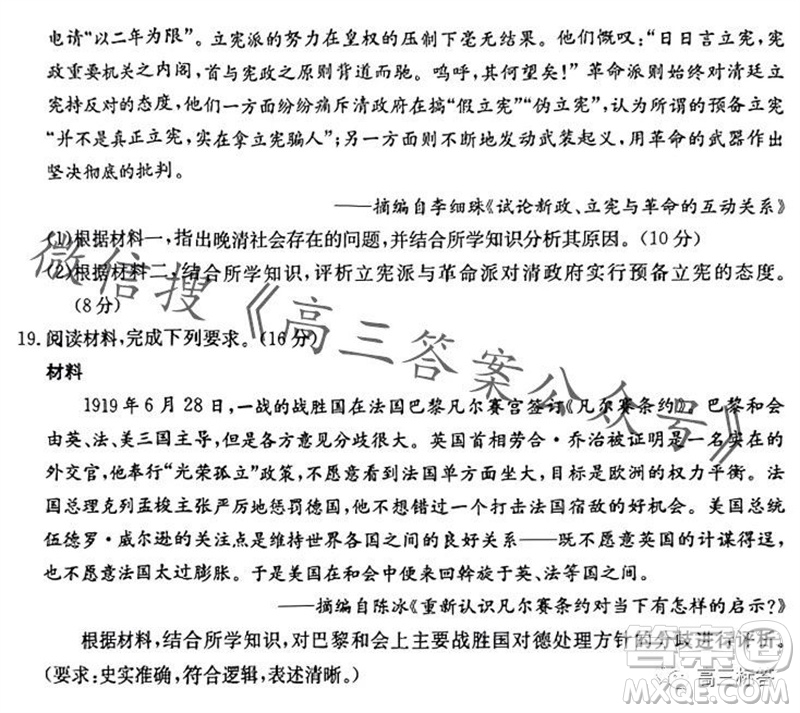 电请“以二年为限”。立宪派的努力在皇权的压制下毫无结果。他们慨叹：“日日言立宪，宪
政重要机关之内阁，首与宪政之原则背道而驰。呜呼，其何望矣！”革命派则始终对清廷立
宪持反对的态度，他们一方面纷纷痛斥清政府在搞“假立宪”“伪立宪”，认为所谓的预备立宪
“并不是真正立宪，实在拿立宪骗人”；另一方面则不断地发动武装起义，用革命的武器作出
坚决彻底的批判。
——摘编自李细珠《试论新政、立宪与革命的互动关系》
(1)根据材料一，指出晚清社会存在的问题，并结合所学知识分析其原因。（10分）
(2)根据材料二，结合所学知识，评析立宪派与革命派对清政府实行预备立宪的态度。
（8分）
19.阅读材料，完成下列要求。（16分）
材料
1919年6月28日，一战的战胜国在法国巴黎凡尔赛宫签订《凡尔赛条约》。巴黎和会
由英、法、美三国主导，但是各方意见分歧很大。英国首相劳合·乔治被证明是一名实在的
外交官，他奉行“光荣孤立”政策，不愿意看到法国单方面坐大，目标是欧洲的权力平衡。法
国总理克列孟梭主张严厉地惩罚德国，他不想错过一个打击法国宿敌的好机会。美国总统
伍德罗·威尔逊的关注点是维持世界各国之间的良好关系——既不愿意英国的计谋得逞，
也不愿意法国太过膨胀。于是美国在和会中便来回斡旋于英、法等国之间。
——摘编自陈冰《重新认识凡尔赛条约对当下有怎样的启示？》
根据材料，结合所学知识，对巴黎和会上主要战胜国对德处理方针的分歧进行评析。
（要求：史实准确，符合逻辑，表述清晰。）
微信搜《高三答案公众号》
答案圈
高三标答
MXQE.COM